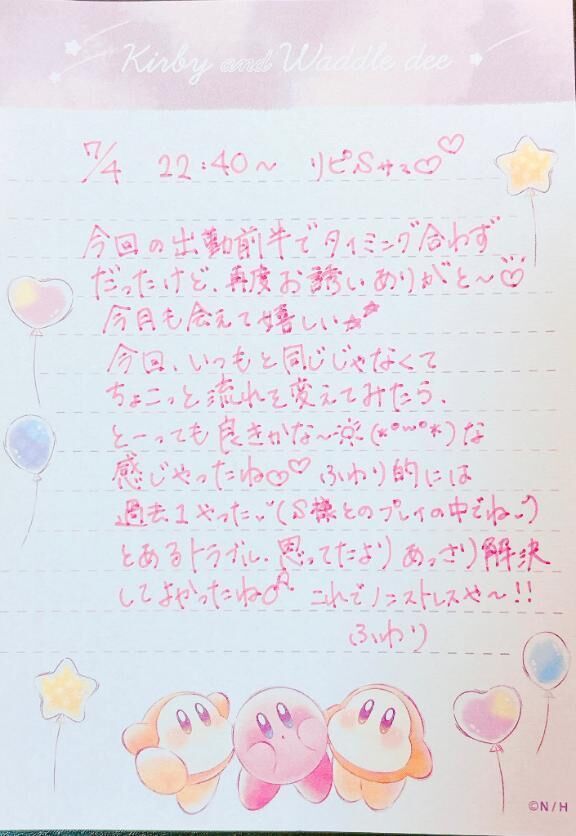 Kirby and Waddle dee
7/4 22:40〜 リピSサマ♡♡
今回の出勤前半でタイミング合わず
だったけど、再度お誘いありがと〜♡
今日も会えて嬉しい☆☆
今回、いつもと同じじゃなくて
ちょこっと流れを変えてみたら、
とーっても良きかな〜☼(*°ω°*)な
感じやったね♡♡ ふわり的には
過去1やった(S様とのプレイの中でね)
とあるトラブル、思ってたよりあっさり解決
してよかったね♪ これでノンストレスや〜!!
ふわり
©N/H